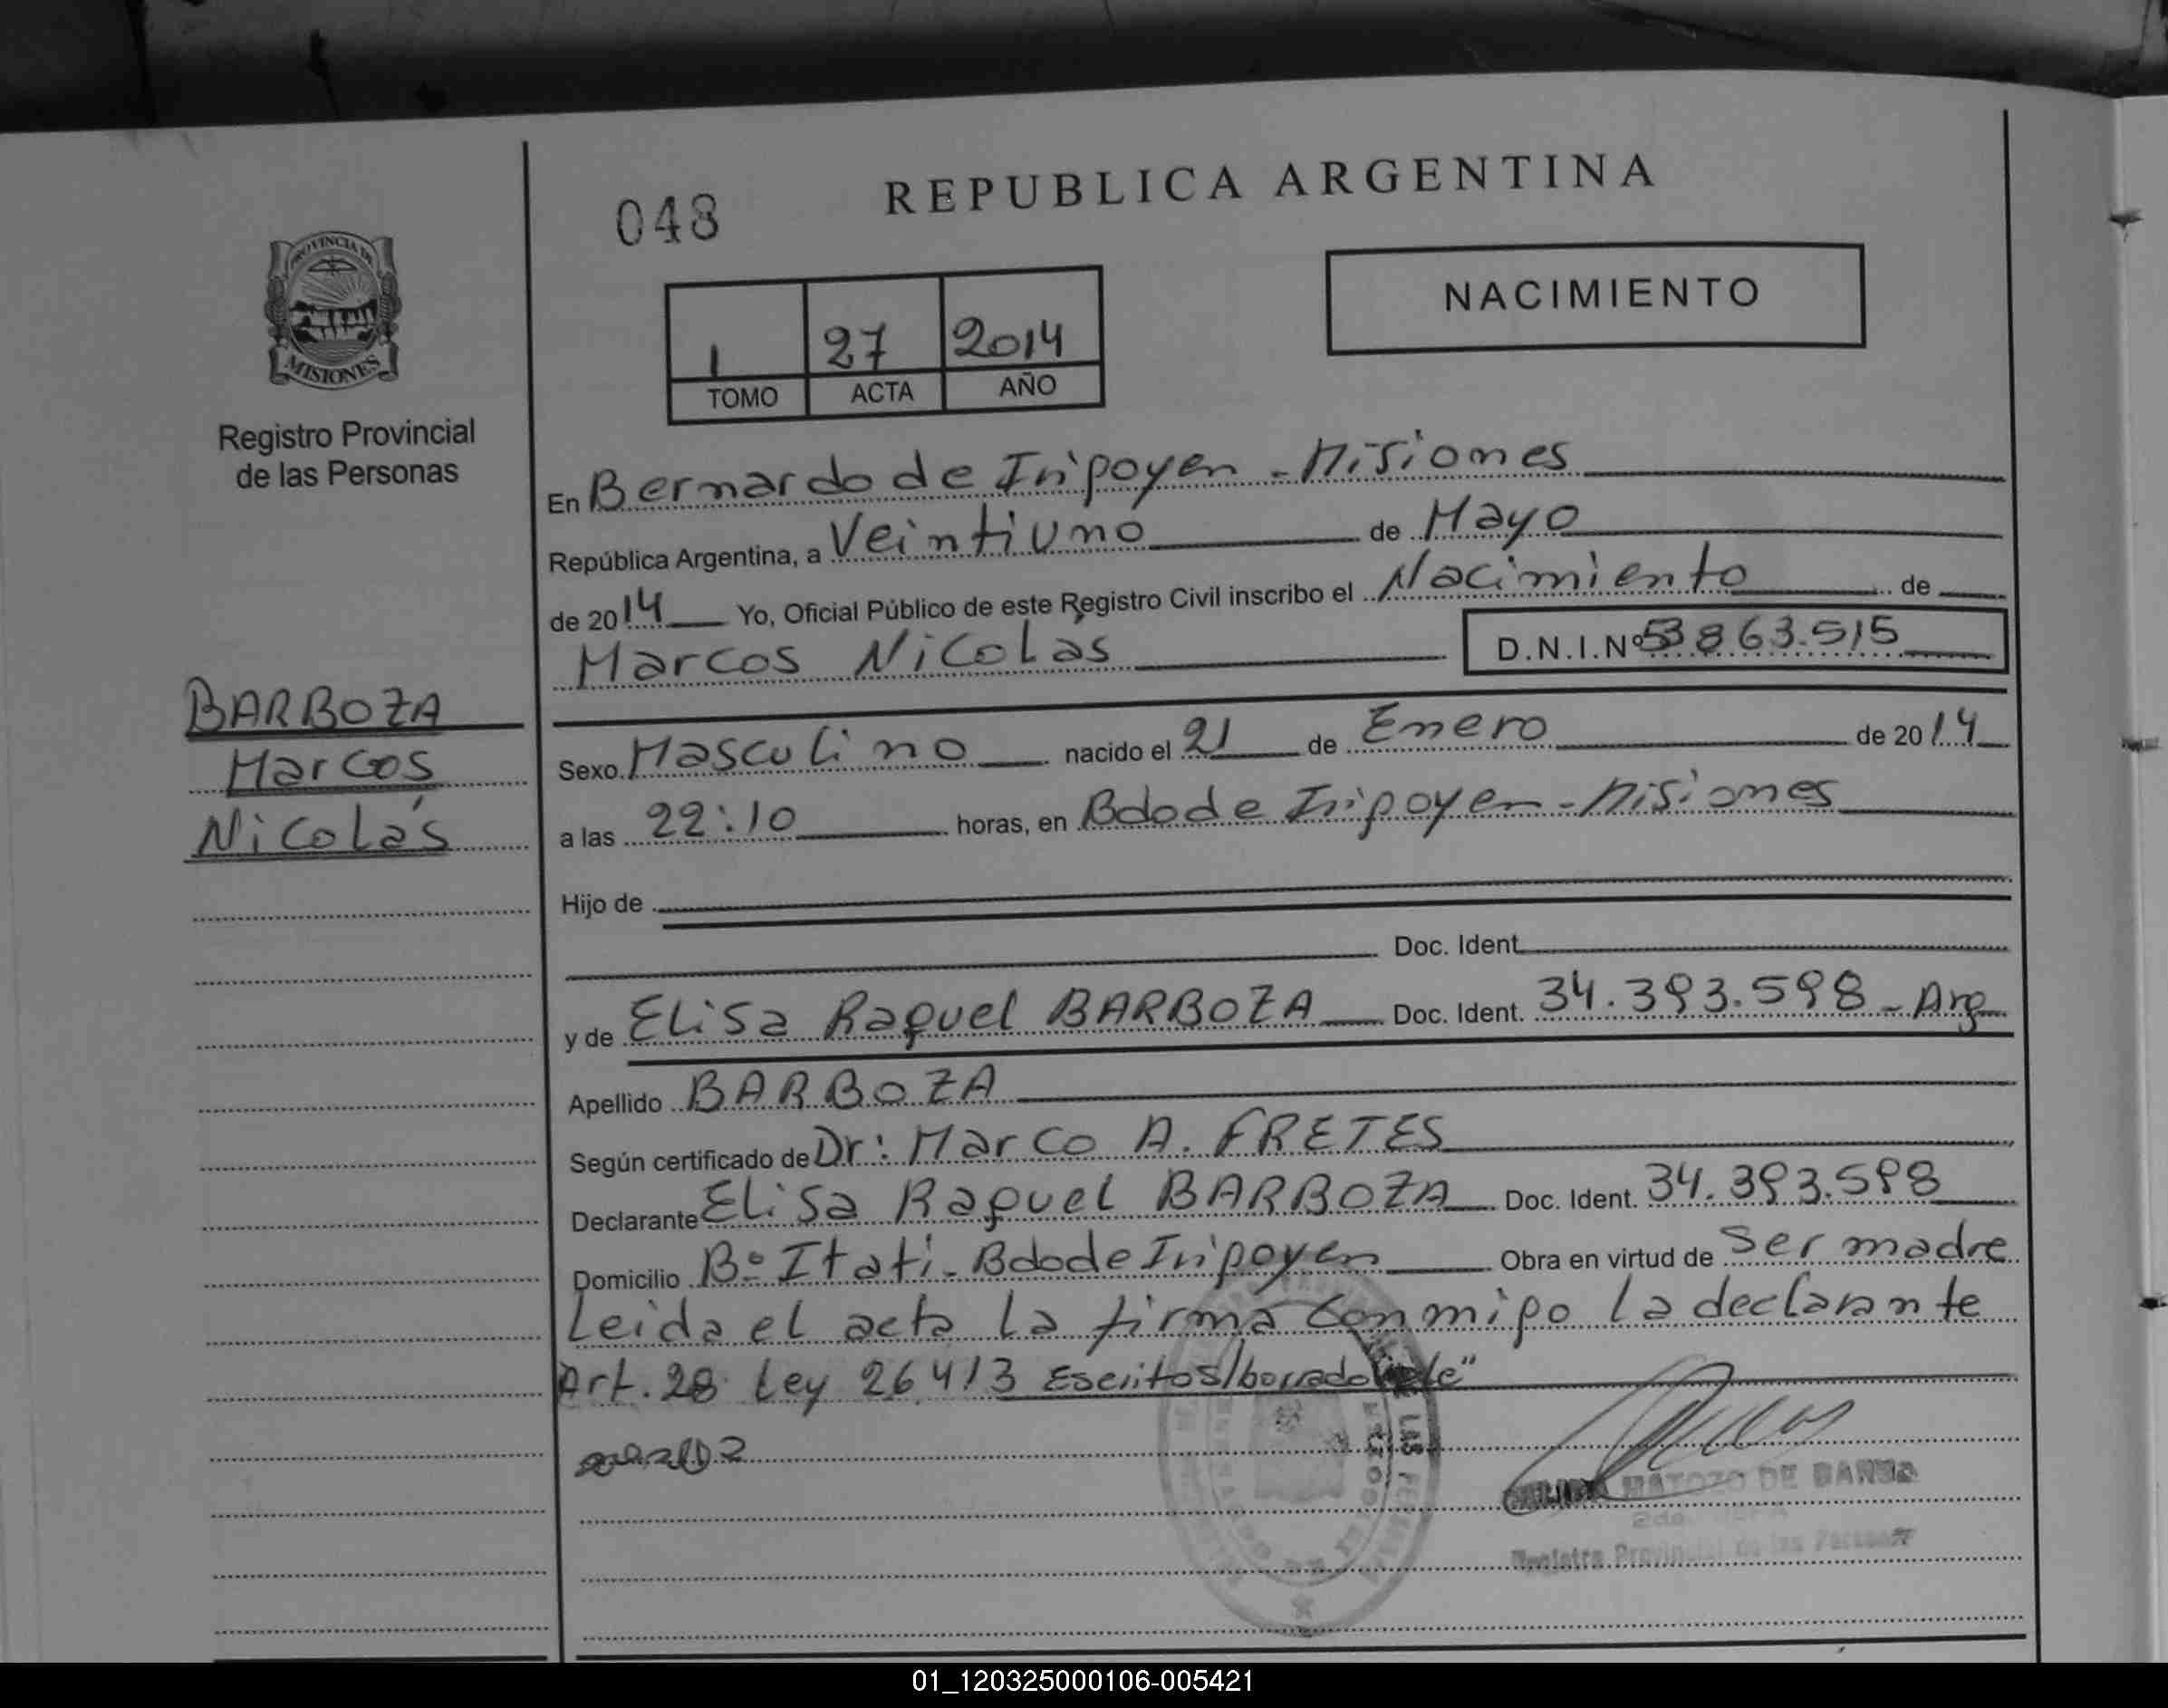 REPUBLICA ARGENTINA
048
PROVINCIA DE
MISIONES
Registro Provincial
de las Personas
NACIMIENTO
1 27 2014
TOMO ACTA AÑO
En Bernardo de Iripoyen - Misiones
República Argentina, a Veintiuno de Mayo
de 2014 Yo, Oficial Público de este Registro Civil inscribo el Nacimiento de
Marcos Nicolás D.N.I.Nº 53863.515
BARBOZA
Marcos
Nicolás
Sexo Masculino nacido el 21 de Enero de 2014
a las 22:10 horas, en Bdo de Iripoyen - Misiones
Hijo de
Doc. Ident.
y de Elisa Raquel BARBOZA Doc. Ident. 34.393.598 - Arg
Apellido BARBOZA
Según certificado de Dr: Marco A. FRETES
Declarante Elisa Raquel BARBOZA Doc. Ident. 34.393.598
Domicilio Bº Itati - Bdo de Iripoyen Obra en virtud de Ser madre
Leida el acta la firma conmipo la declarante
Art. 28 Ley 26413 Escritos/borrado
MATOZO DE
Registro Provincial de las Personas
01_120325000106-005421